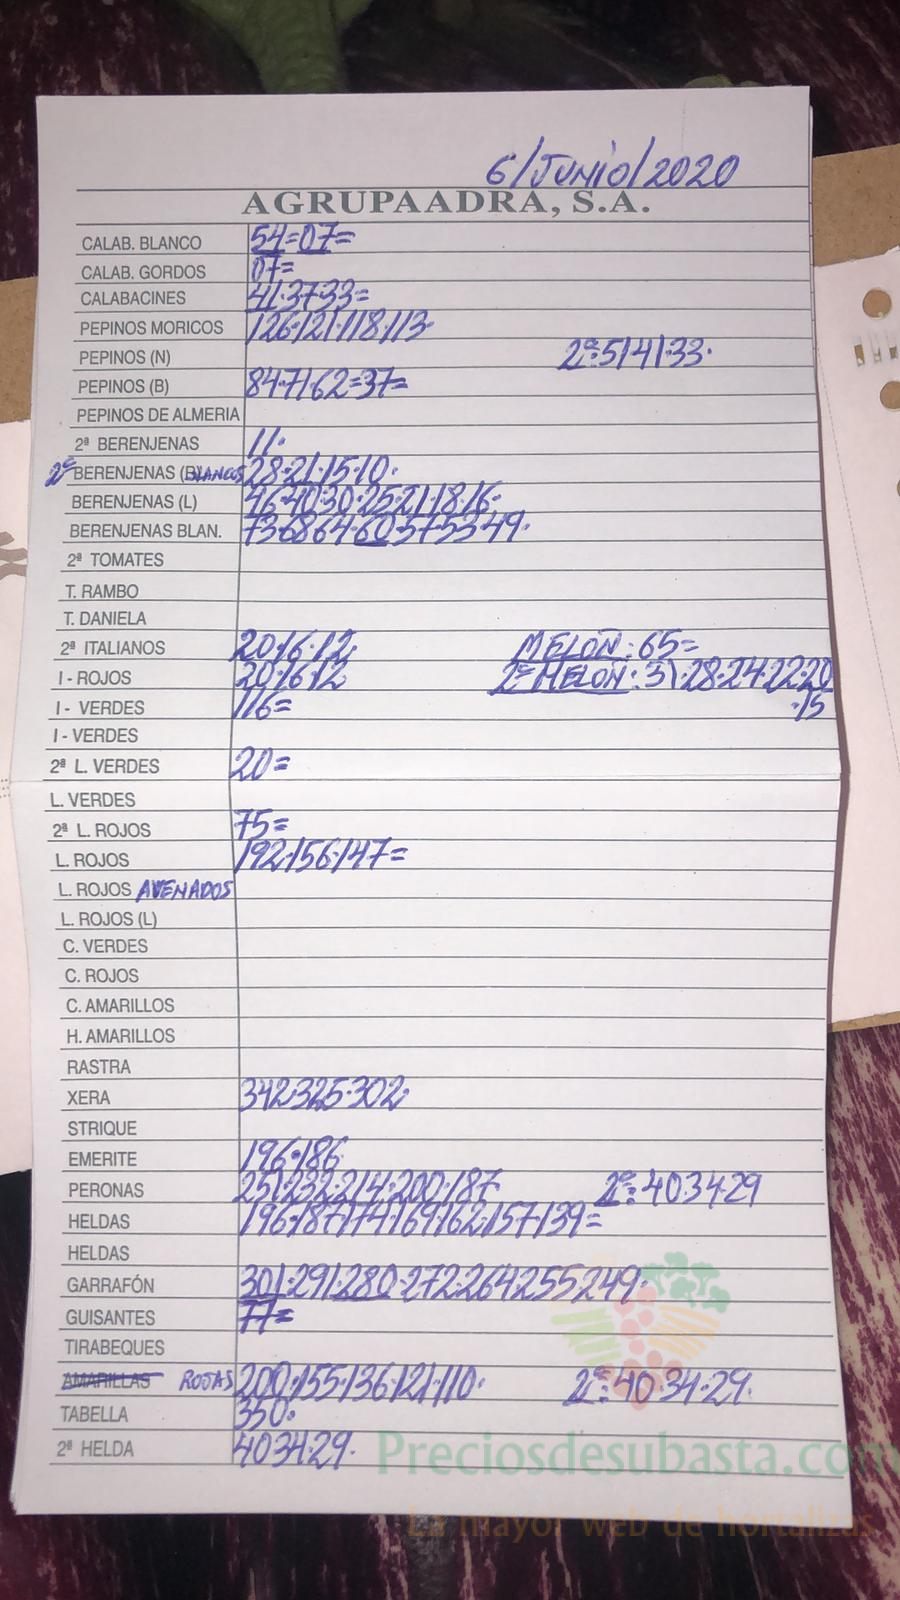 6/JUNIO/2020
AGRUPAADRA, S.A.
CALAB. BLANCO 54=07=
CALAB. GORDOS 07=
CALABACINES 41·37·33=
PEPINOS MORICOS 126·121·118·113·
PEPINOS (N) 2ª:51·41·33·
PEPINOS (B) 84·71·62=37=
PEPINOS DE ALMERIA
2ª BERENJENAS 11·
2ª BERENJENAS (BLANCOS 28·21·15·10·
BERENJENAS (L) 46·40·30·25·21·18·16·
BERENJENAS BLAN. 73·68·64·60·57·53·49·
2ª TOMATES
T. RAMBO
T. DANIELA
2ª ITALIANOS 20·16·12· MELOÑ: 65=
I - ROJOS 20·16·12 2ª MELOÑ: 31·28·24·22·20
I - VERDES 116= ·15
I - VERDES
2ª L. VERDES 20=
L. VERDES
2ª L. ROJOS 75=
L. ROJOS 192·156·147=
L. ROJOS AVENADOS
L. ROJOS (L)
C. VERDES
C. ROJOS
C. AMARILLOS
H. AMARILLOS
RASTRA
XERA 342·325·302·
STRIQUE
EMERITE 196·186·
PERONAS 251·232·214·200·187· 2ª:40·34·29
HELDAS 196·187·174·169·162·157·139=
HELDAS
GARRAFÓN 301·291·280·272·264·255·249·
GUISANTES 77=
TIRABEQUES
AMARILLAS ROJAS 200·155·136·121·110· 2ª:40·34·29·
TABELLA 350·
2ª HELDA 40·34·29·
Preciosdesubasta.com
La mayor web de hortalizas